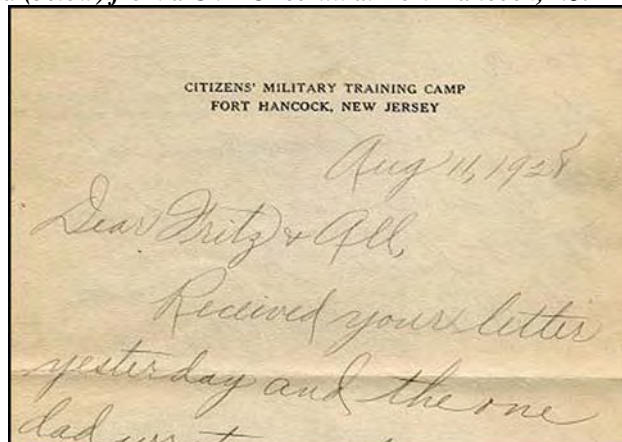 CITIZENS' MILITARY TRAINING CAMP
FORT HANCOCK, NEW JERSEY
Aug 11, 1928
Dear Fritz & All,
Received your letter
yesterday and the one
dad